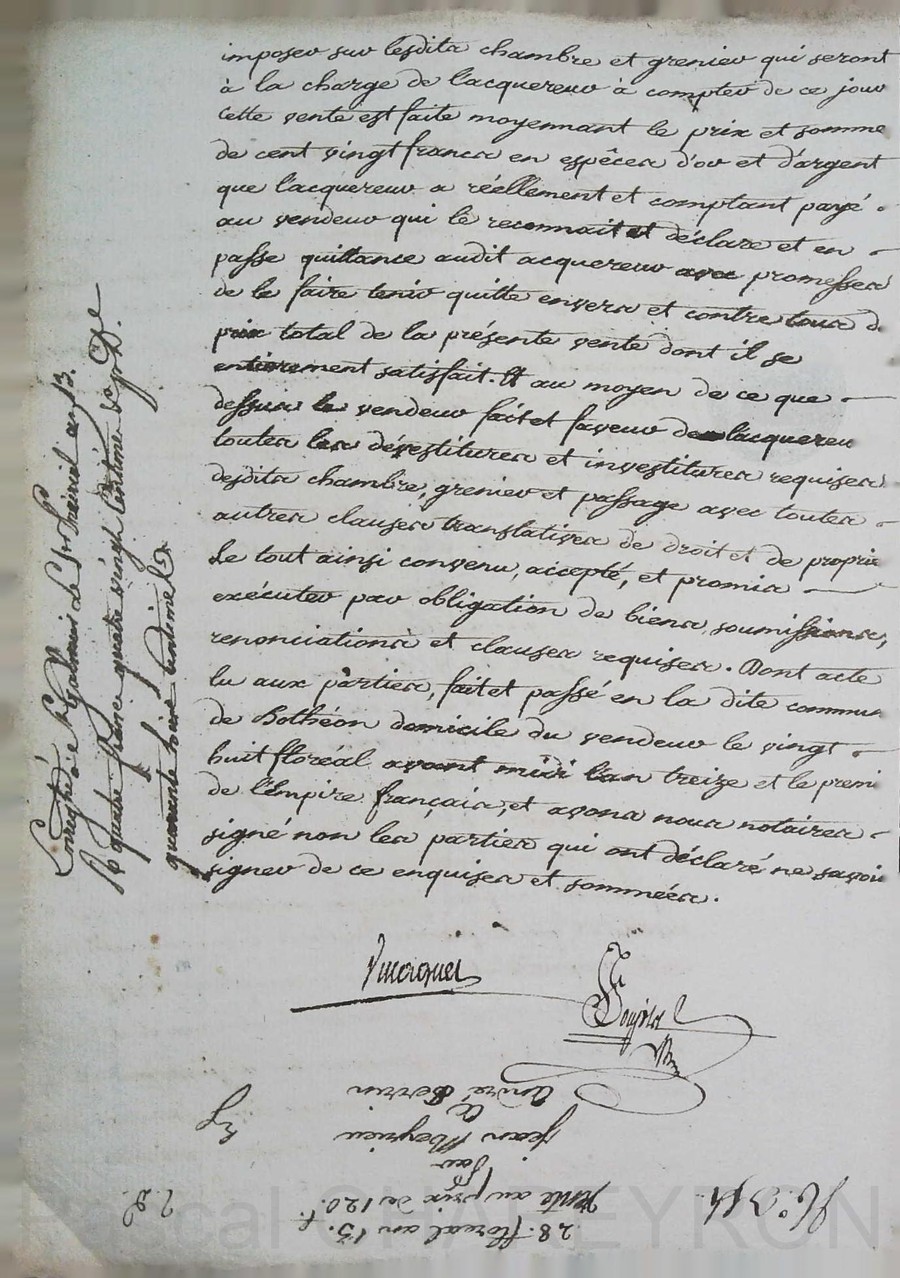 imposer sur lesdits chambre et grenier qui seront
à la charge de l'acquereur à compter de ce jour
Cette vente est faite moyennant le prix et somme
de cent vingt francs en espêces d'or et d'argent
que l'acquereur a réellement et comptant payé
au vendeur qui le reconnait et déclare et en
passe quittance audit acquereur avec promesses
de le faire tenir quitte envers et contre tous d
prix total de la présente vente dont il se
entierement satisfait. Et au moyen de ce que
dessus le vendeur fait et faveur de l'acquereu
toutes les dévestitures et investitures requises
desdits chambre, grenier et passage avec toutes
autres clauses translatives de droit et de proprie
Le tout ainsi convenu, accepté, et promis
exécuter par obligation de biens, soumissions,
renonciations et clauses requises. Dont acte
lu aux parties, fait et passé en la dite commun
de Bothéon domicile du vendeur le vingt
huit floréal avant midi l'an treize et le premi
de l'Empire français, et avons nous notaires
signé non les parties qui ont déclaré ne savoir
signer de ce enquises et sommées.
Enregistré à St Galmier le prairial an 13.
quatre francs quatre vingt centimes
quarante huit centimes
N.o 314
28 floreal an 13.
Vente au prix de 120. f.
par
Jean Meyrieu
à
André Perrin
Pascal CHAREYRON